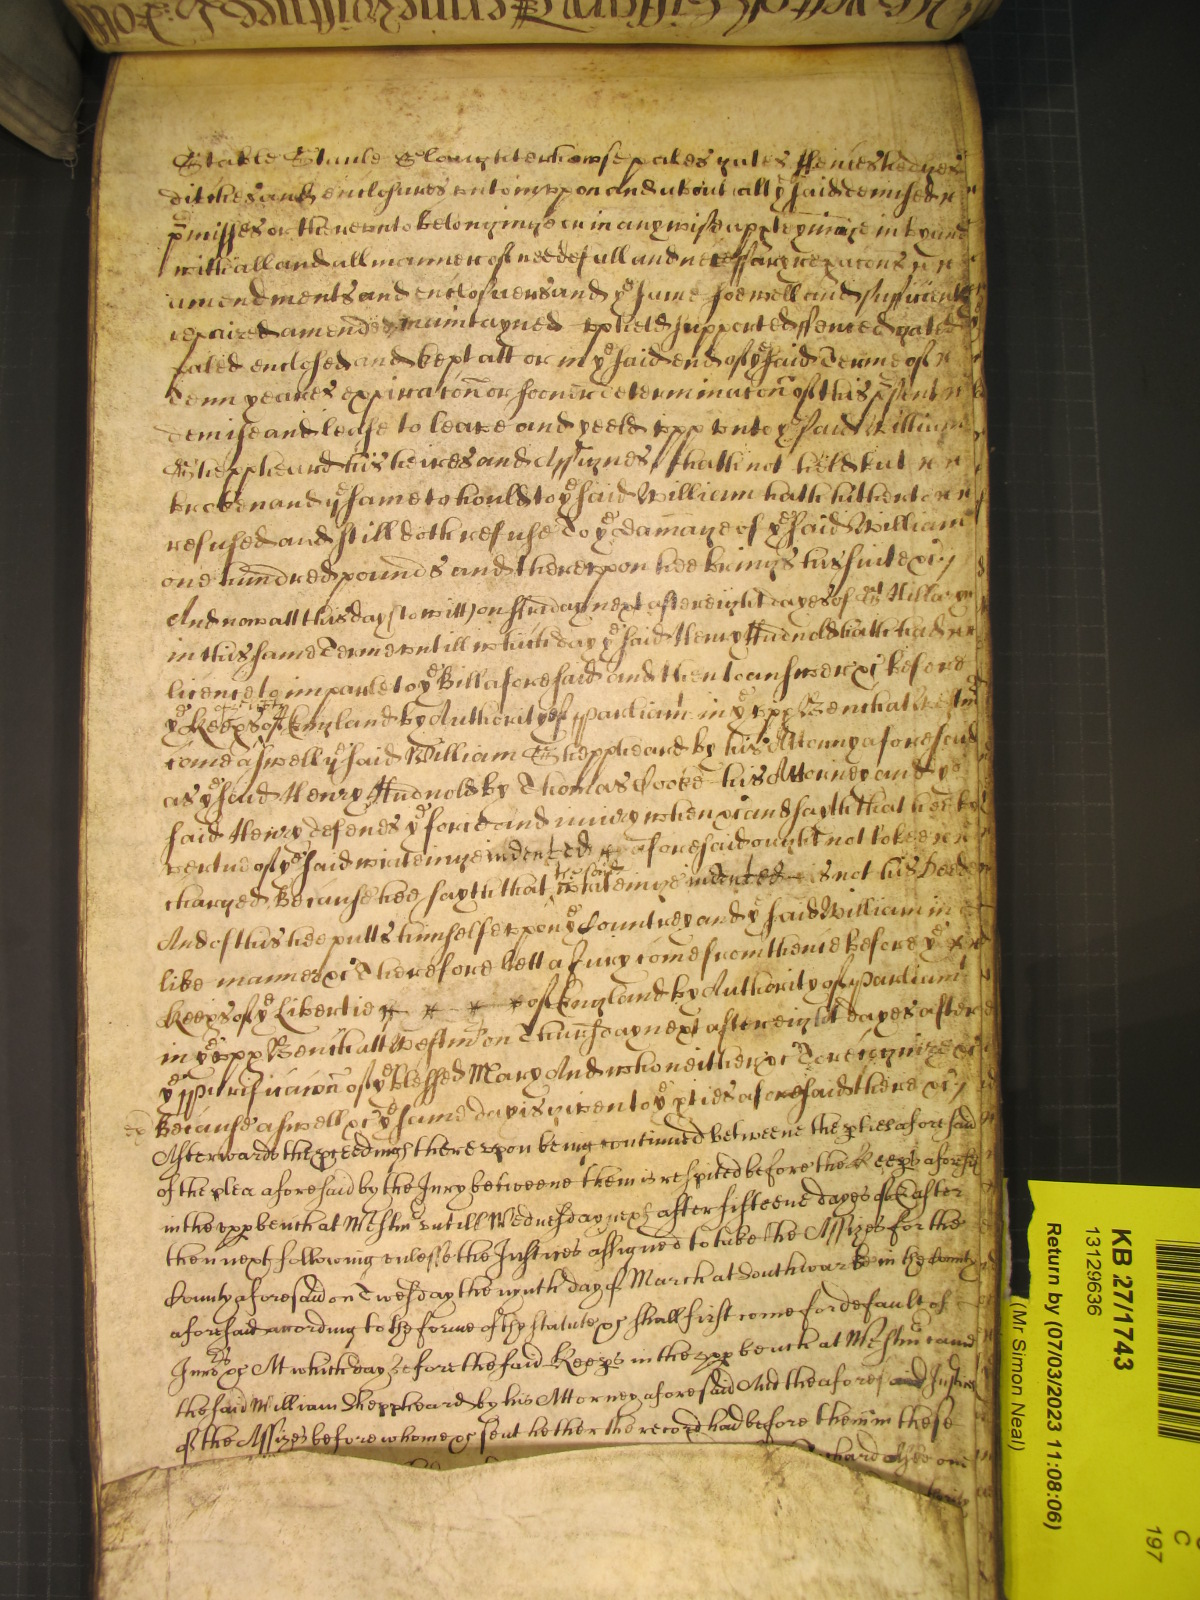 Stable Stuule Slaughterhowse pales gates ffences hedges
ditches and enclosures unto uppon and about all ye said demised
pmisses or thereunto belonginge or in any wise apptayninge in by and
withall and all manner of needefull and necessary repacons
amendments and enclosures and ye same soe well and sufficiently
repaired amended maintayned upheld supported fenced gated
paled enclosed and kept att or in ye said end of ye said Terme of
Tenn yeares expiracon or sooner determinacon of this psent
demise and lease to leave and yeeld upp unto ye said William
Sheppheard his heires and Assignes, hath not held but
broken and ye same to hould to ye said William hath hitherto
refused and still doth refuse To ye damage of ye said William
one hundred pounds and thereuppon hee brings his suite &c
And now att this day (to witt) on ffriday next after eight dayes of St Hillary
in this same Terme untill which day ye said Henry Hudnold hath had
licence to imparle to ye Bill aforesaid and then to answer &c before
ye Keeps of England by Authority of Parliamt in ye upp Bench at Westmr
come aswell ye said William Sheppheard by his Attorny aforesaid
as ye said Henry Hudnold by Thomas Cooke his Attorney and ye
said Henry defends ye force and iniury when &c and sayth that hee by
vertue of ye said writeinge indented aforesaid ought not to bee
charged Because hee sayth that the said writeinge indented is not his Deede
And of this hee putts himselfe uppon ye Countrey and ye said William in
like manner &c Therefore lett a Jury come from thence Before ye
Keeps of ye Libertie of England by Authority of Parliamt
in ye upp Bench att Westmr on Thursday next after eight dayes after
ye Purificacon of ye Blessed Mary And who neither &c To recognize &c
Because aswell &c ye same day is given to ye pties aforesaid there &c
Afterwards the pceedings thereupon being continued betweene the pties aforesaid
of the plea aforesaid by the Jury betweene them is respited before the Keeps aforesd
in the upp bench at Westmr untill Wednesday next after fifteene dayes of Easter
then next following unlesse the Justices assigned to take the Assizes for the
County aforesaid on Twesday the nynth day of March at Southwarke in the County
aforesaid according to the forme of the statute &c shall first come for default of
Jurors &c At which day before the said Keeps in the upp bench at Westmr came
the said William Sheppheard by his Attorney aforesaid And the aforesaid Justices
of the Assizes before whome &c sent hether the record had before them in these
KB 27/1743
13129636
Return by (07/03/2023 11:08:06)
(Mr Simon Neal)
C
197